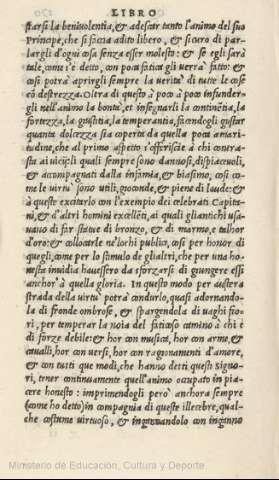 LIBRO
starsi la beniuolentia, & adescar tanto l'animo del suo
Principe, che si faccia adito libero, & sicuro di par-
largli d'ogni cosa senza esser molesto: & se egli sarà
tale, come s'è detto, con poca fatica gli verrà fatto: &
cosi potrà aprirgli sempre la verità di tutte le cose
cō destrezza. Oltra di questo à poco à poco infunder-
gli nell'animo la bontà, et insegnarli la continētia, la
fortezza, la giustitia, la temperantia, facendogli gustar
quanta dolcezza sia coperta da quella poca amari-
tudine, che al primo aspetto s'offerisce à chi contra-
sta ai vicij: li quali sempre sono dannosi, dispiaceuoli,
& accompagnati dalla infamia, & biasimo, cosi co
me le virtu sono utili, gioconde, & piene di laude: &
à queste excitarlo con l'exempio dei celebrati Capita-
ni, & d'altri homini excellēti, ai quali gli antichi usa-
uano di far statue di bronzo, & di marmo, e talhor
d'oro: & collocarle ne'lochi publici, cosi per honor di
quegli, come per lo stimulo de gli altri, che per una ho-
nesta inuidia hauessero da sforzarsi di giungere essi
anchor'à quella gloria. In questo modo per austera
strada della virtu potrà condurlo, quasi adornando-
la di fronde ombrose, & spargendola di uaghi fio-
ri, per temperar la noia del faticoso camino à chi è
di forze debile: & hor con musica, hor con arme, &
caualli, hor con versi, hor con ragionamenti d'amore,
& con tutti que modi, che hanno detti questi signo-
ri, tener continuamente quell'animo occupato in pia-
cere honesto: imprimendogli però anchora sempre
(come ho detto) in compagnia di queste illecebre, qual-
che costume virtuoso, & ingannandolo con inganno
Ministerio de Educación, Cultura y Deporte